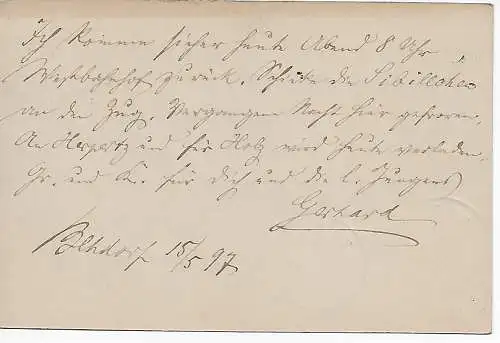 Ich komme sicher heute Abend 8 Uhr
Westbahnhof zurück. Schicke die
an den Zug. Vergangene Nacht hier gefroren.
An Herpertz und für Holz wird heute verladen.
Gr. und K. für Dich und die l. Jungens
Gerhard
15/5 97